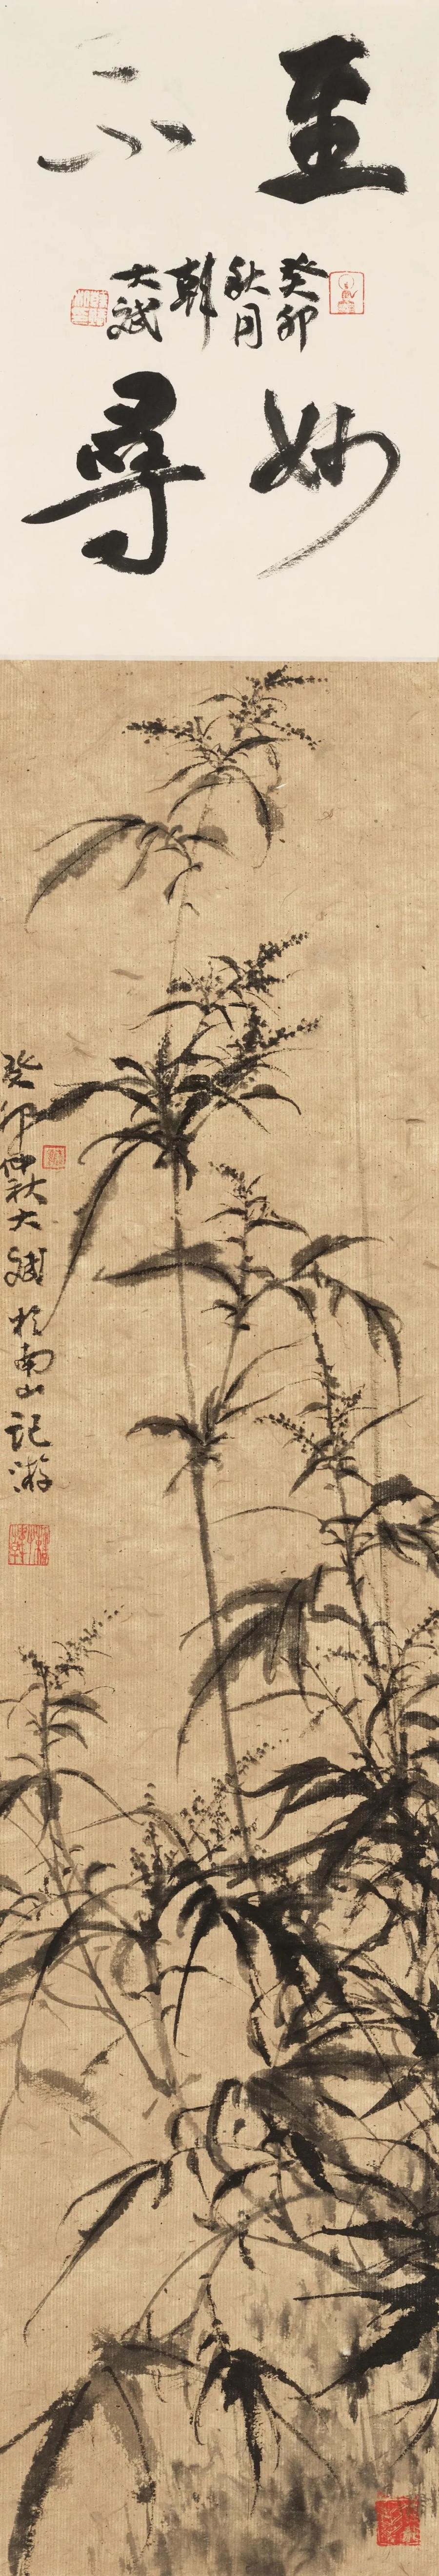 至妙
不尋
癸卯
秋月
韓
大斌
癸卯仲秋大斌於南山記游